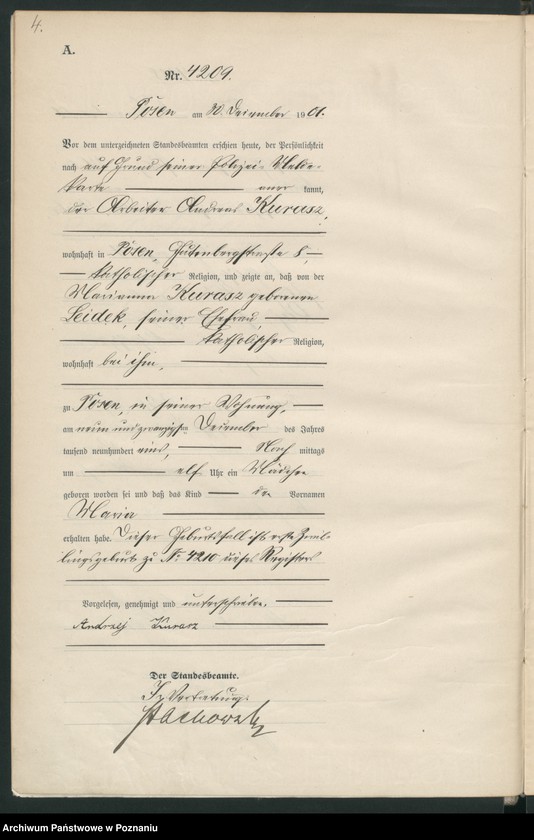 4.
A.
Nr. 4209.
Posen am 30. Dezember 1901.
Vor dem unterzeichneten Standesbeamten erschien heute, der Persönlichkeit
nach auf Grund seiner Polizei-Melde-
karte aner kannt,
der Arbeiter Andreas Kurasz,
wohnhaft in Posen, Gutenbergstraße 8,
katholischer Religion, und zeigte an, daß von der
Marianna Kurasz geborenen
Seidek, seiner Ehefrau,
katholischer Religion,
wohnhaft bei ihm,
zu Posen, in seiner Wohnung,
am neun und zwanzigsten Dezember des Jahres
tausend neunhundert eins, Nach mittags
um elf Uhr ein Mädchen
geboren worden sei und daß das Kind den Vornamen
Maria
erhalten habe. Dieser Geburtsfall ist erste Zwil-
lingsgeburt zu Nr. 4210 dieses Registers
Vorgelesen, genehmigt und unterschrieben.
Andrzej Kurasz
Der Standesbeamte.
In Vertretung.
Archiwum Państwowe w Poznaniu